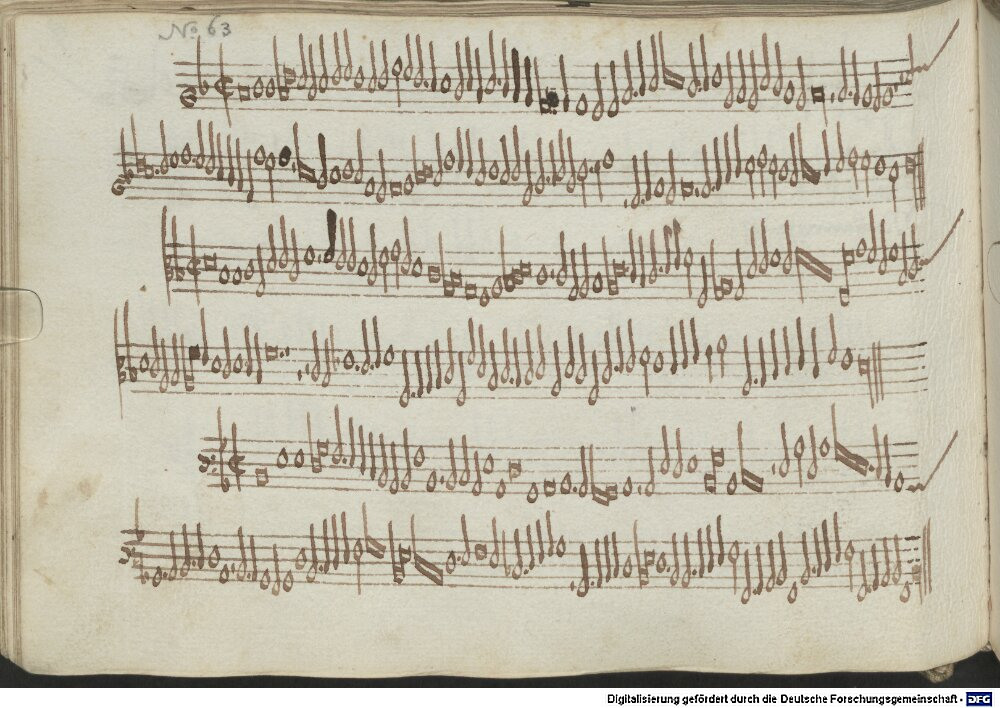 No. 63
Digitalisierung gefördert durch die Deutsche Forschungsgemeinschaft - DFG